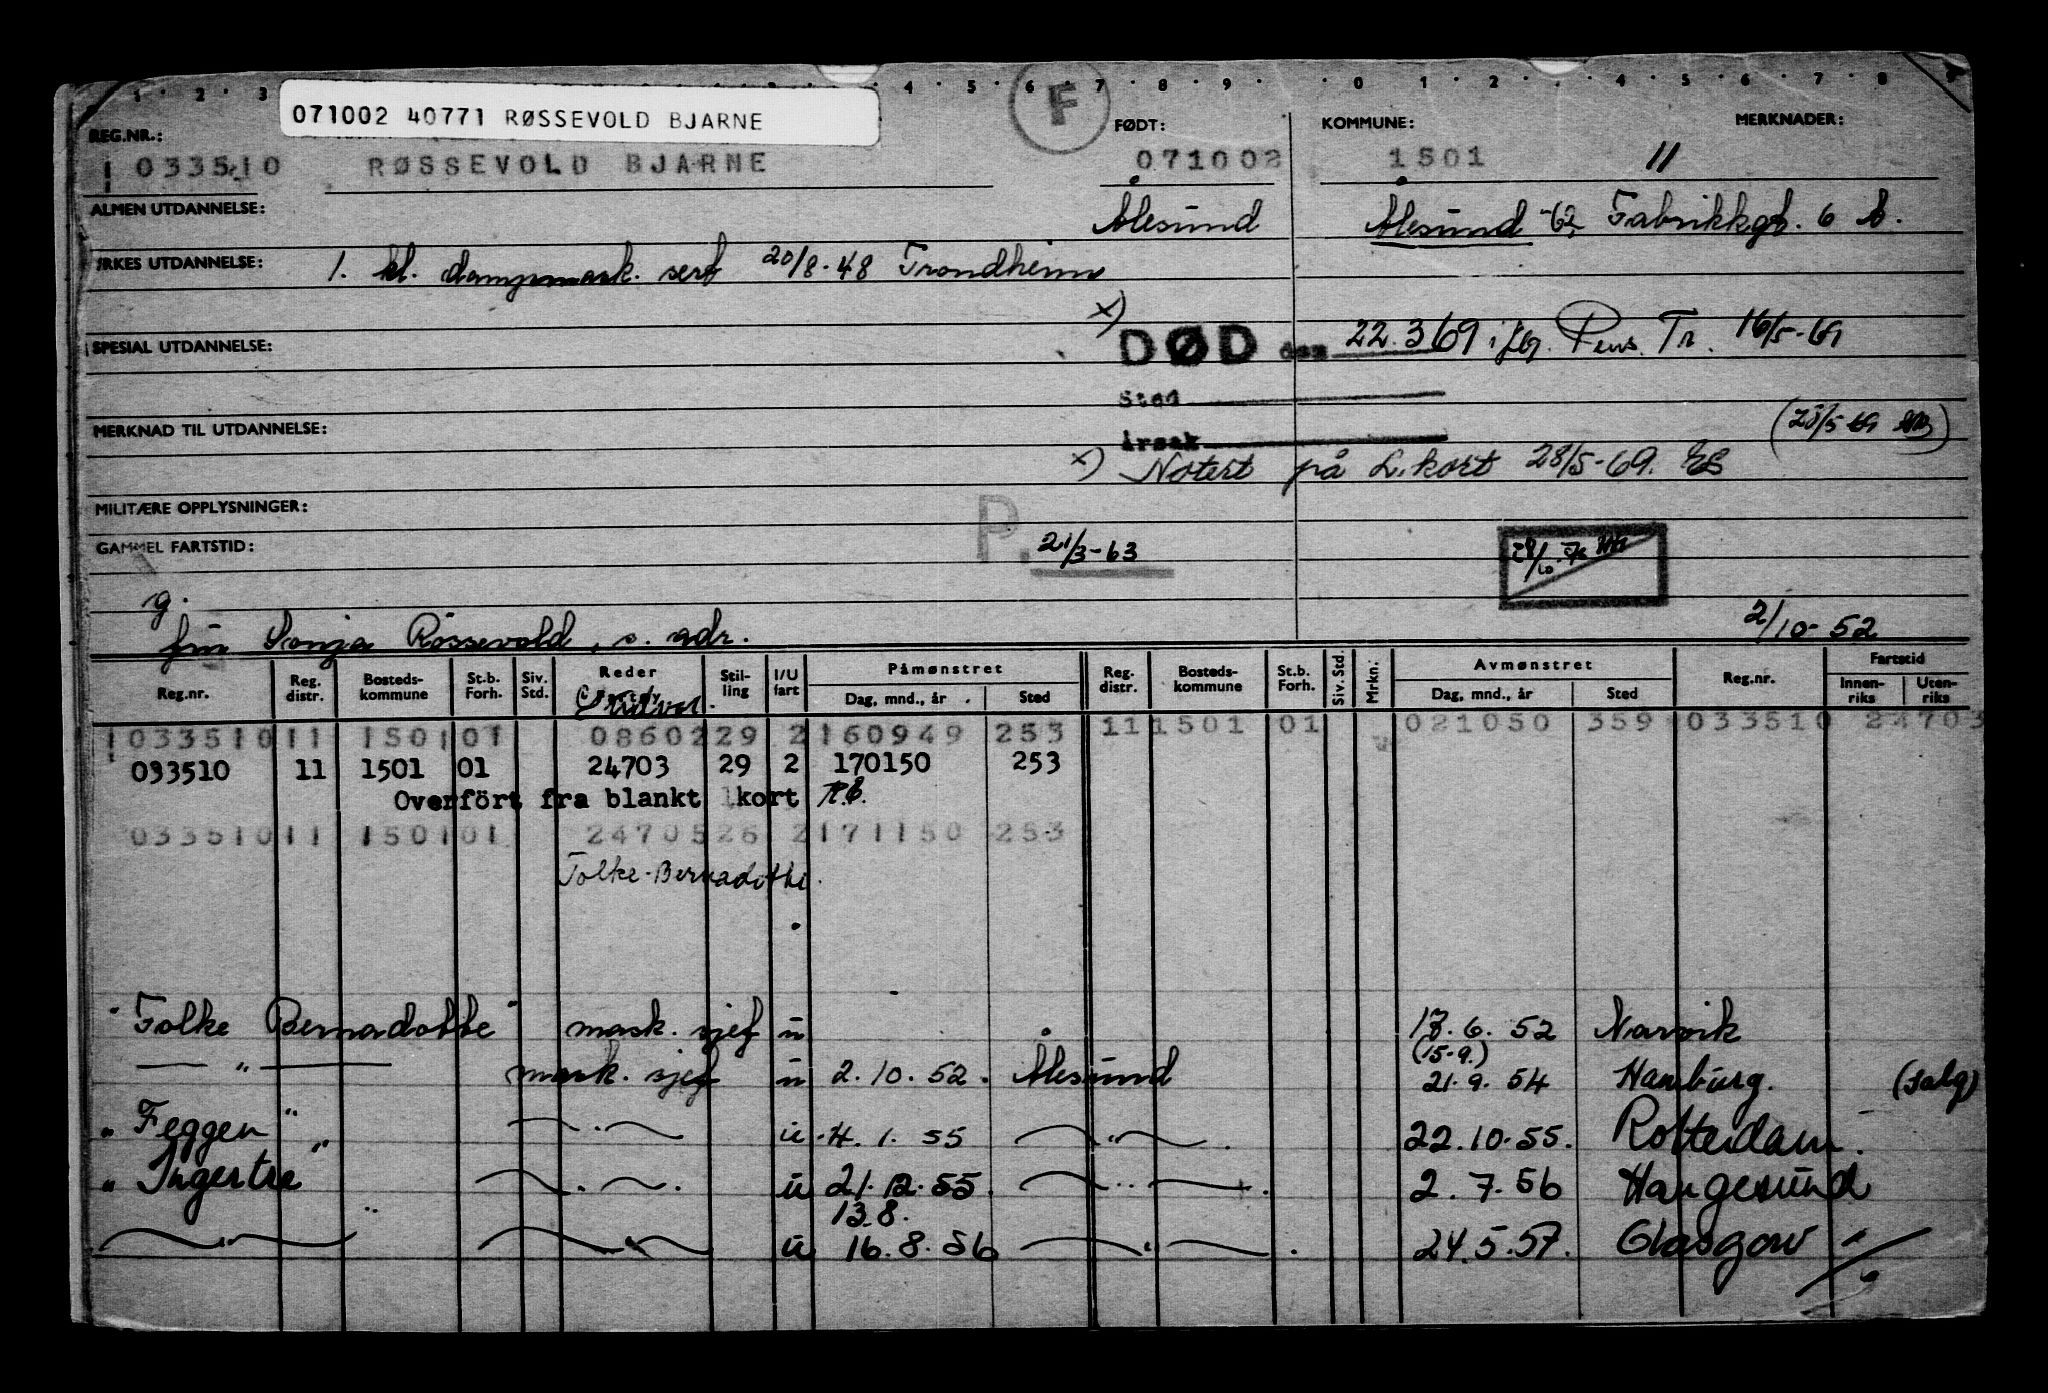 071002 40771 RØSSEVOLD BJARNE
F
REG.NR.: FØDT: KOMMUNE: MERKNADER:
1033510 RØSSEVOLD BJARNE 071002 1501 11
ALMEN UTDANNELSE: Ålesund Ålesund -62, Fabrikkgt. 6 b.
YRKES UTDANNELSE: 1. kl. dampmask. sert 20/8-48 Trondheim
x)
SPESIAL UTDANNELSE: DØD den 22.3 69 i flg. Pens. Tr. 16/5-69
Sted
MERKNAD TIL UTDANNELSE: årsak (23/5-69)
x) Notert på L.kort 28/5-69. ES
MILITÆRE OPPLYSNINGER: P.
GAMMEL FARTSTID: 21/3-63
g.
fru Sonja Røssevold, s. adr. 2/10-52
Reg.nr. Reg. distr. Bosteds-kommune St.b. Forh. Siv. Std. Reder Stil-ling I/U fart Påmønstret Dag, mnd., år Sted Reg. distr. Bosteds-kommune St.b. Forh. Siv. Std. Mrkn: Avmønstret Dag, mnd., år Sted Reg.nr. Fartstid Innen-riks Uten-riks
1033510 11 1501 01 08602 29 2 160949 253 11 1501 01 021050 359 033510 24703
033510 11 1501 01 24703 29 2 170150 253
Overført fra blankt kort
033510 11 1501 01 24705 26 2 171150 253
Folke-Bernadotte.
"Folke Bernadotte" mask. sjef u 17.6.52 Narvik
(15.9.)
— " — mask. sjef u 2.10.52. Ålesund 21.9.54 Hamburg. (salg)
"Feggen" — " — u 4.1.55 — " — . 22.10.55. Rotterdam.
"Ingertre" — " — . u 21.12.55. — " — . 2.7.56 Haugesund
13.8.
— " — — " — u 16.8.56 — " — . 24.5.57. Glasgow